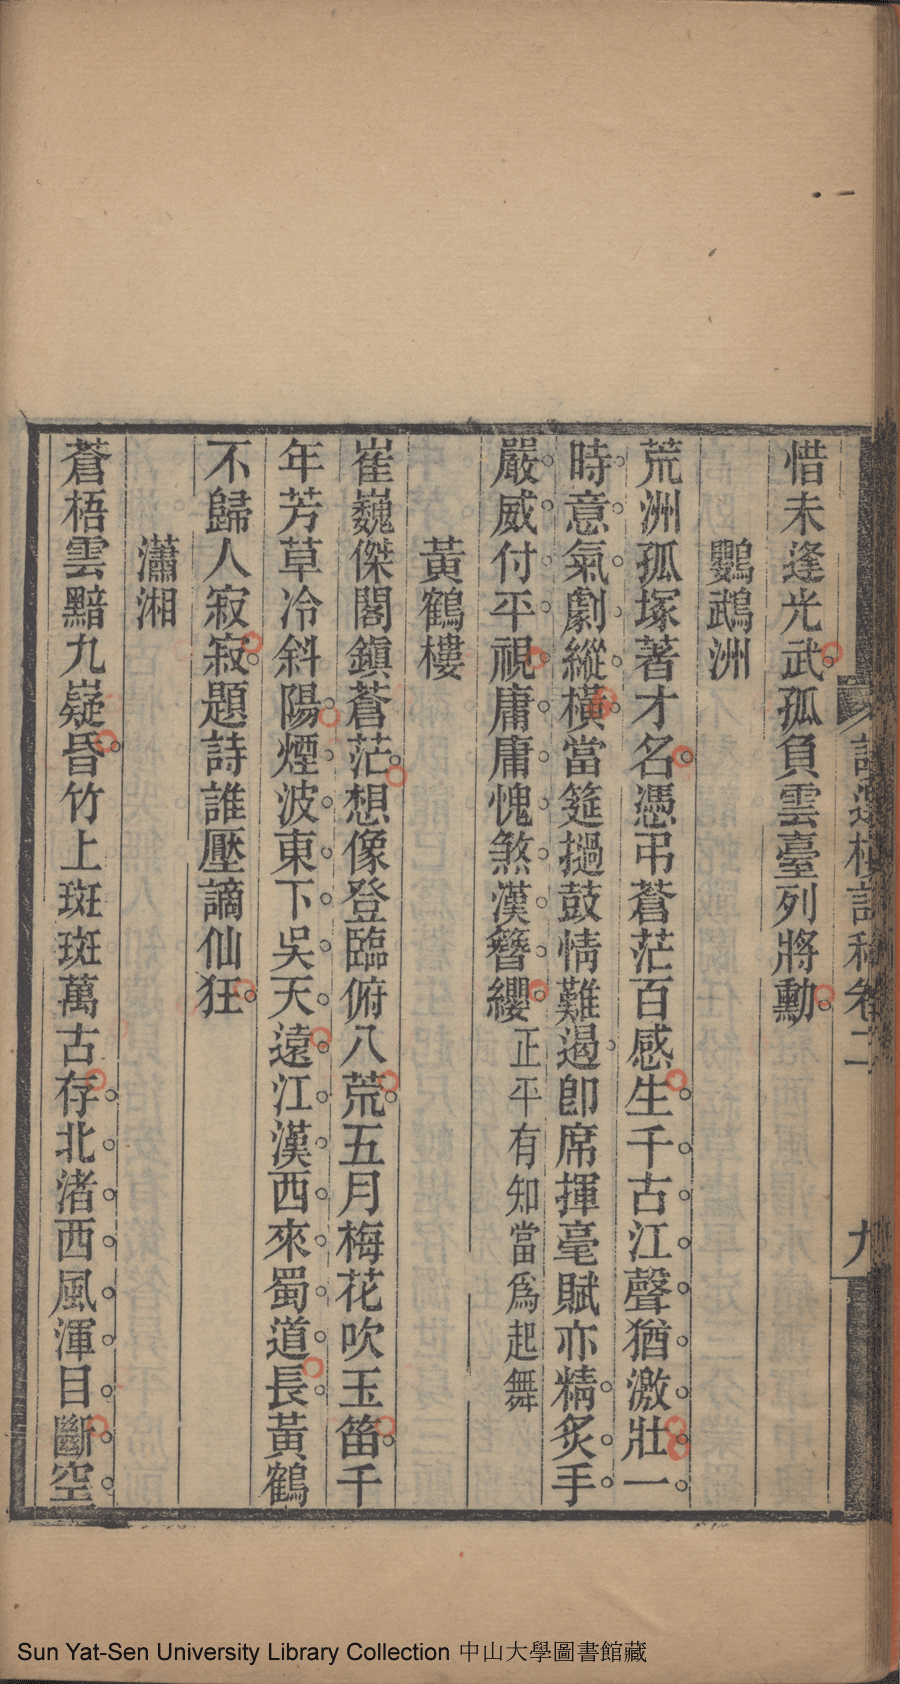 惜未逢光武孤負雲臺列將勳
鸚鵡洲
荒洲孤塚著才名憑弔蒼茫百感生千古江聲猶激壯一
時意氣劇縱橫當筵撾鼓情難遏卽席揮毫賦亦精炙手
嚴威付平視庸庸愧煞漢簪纓正平有知當爲起舞
黃鶴樓
崔巍傑閣鎭蒼茫想像登臨俯八荒五月梅花吹玉笛千
年芳草冷斜陽煙波東下吳天遠江漢西來蜀道長黃鶴
不歸人寂寂題詩誰壓謫仙狂
瀟湘
蒼梧雲黯九嶷昏竹上斑斑萬古存北渚西風渾目斷空
卷二
九
Sun Yat-Sen University Library Collection 中山大學圖書館藏